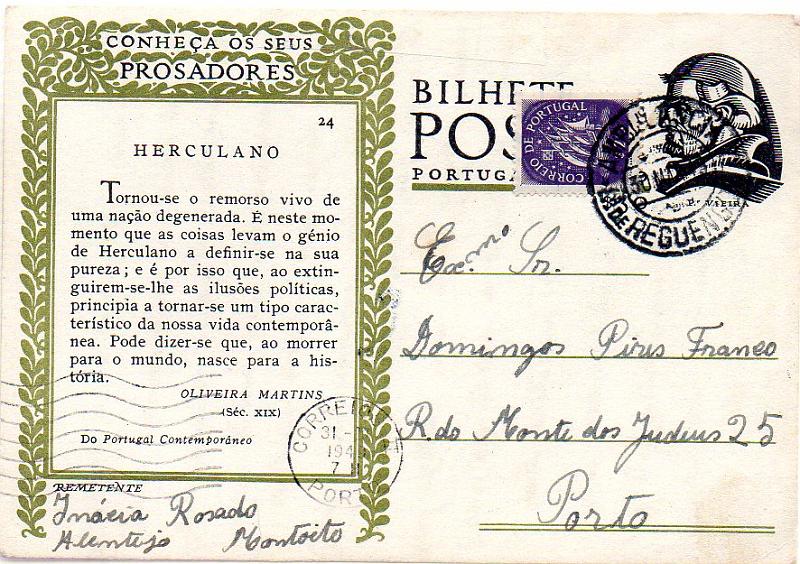 CONHEÇA OS SEUS
PROSADORES
24
HERCULANO
Tornou-se o remorso vivo de
uma nação degenerada. É neste mo-
mento que as coisas levam o génio
de Herculano a definir-se na sua
pureza; e é por isso que, ao extin-
guirem-se-lhe as ilusões políticas,
principia a tornar-se um tipo carac-
terístico da nossa vida contemporâ-
nea. Pode dizer-se que, ao morrer
para o mundo, nasce para a his-
tória.
OLIVEIRA MARTINS
(Séc. XIX)
Do Portugal Contemporâneo
REMETENTE
Inácia Rosado
Alentejo Montoito
BILHETE
POS
PORTUGA
CORREIO DE PORTUGAL
AMBULANCIA
DE REGUEN
VIEIRA
CORREIO
31
194
7
PORT
Exmo Sr.
Domingos Pires Franco
R. do Monte dos Judeus 25
Porto